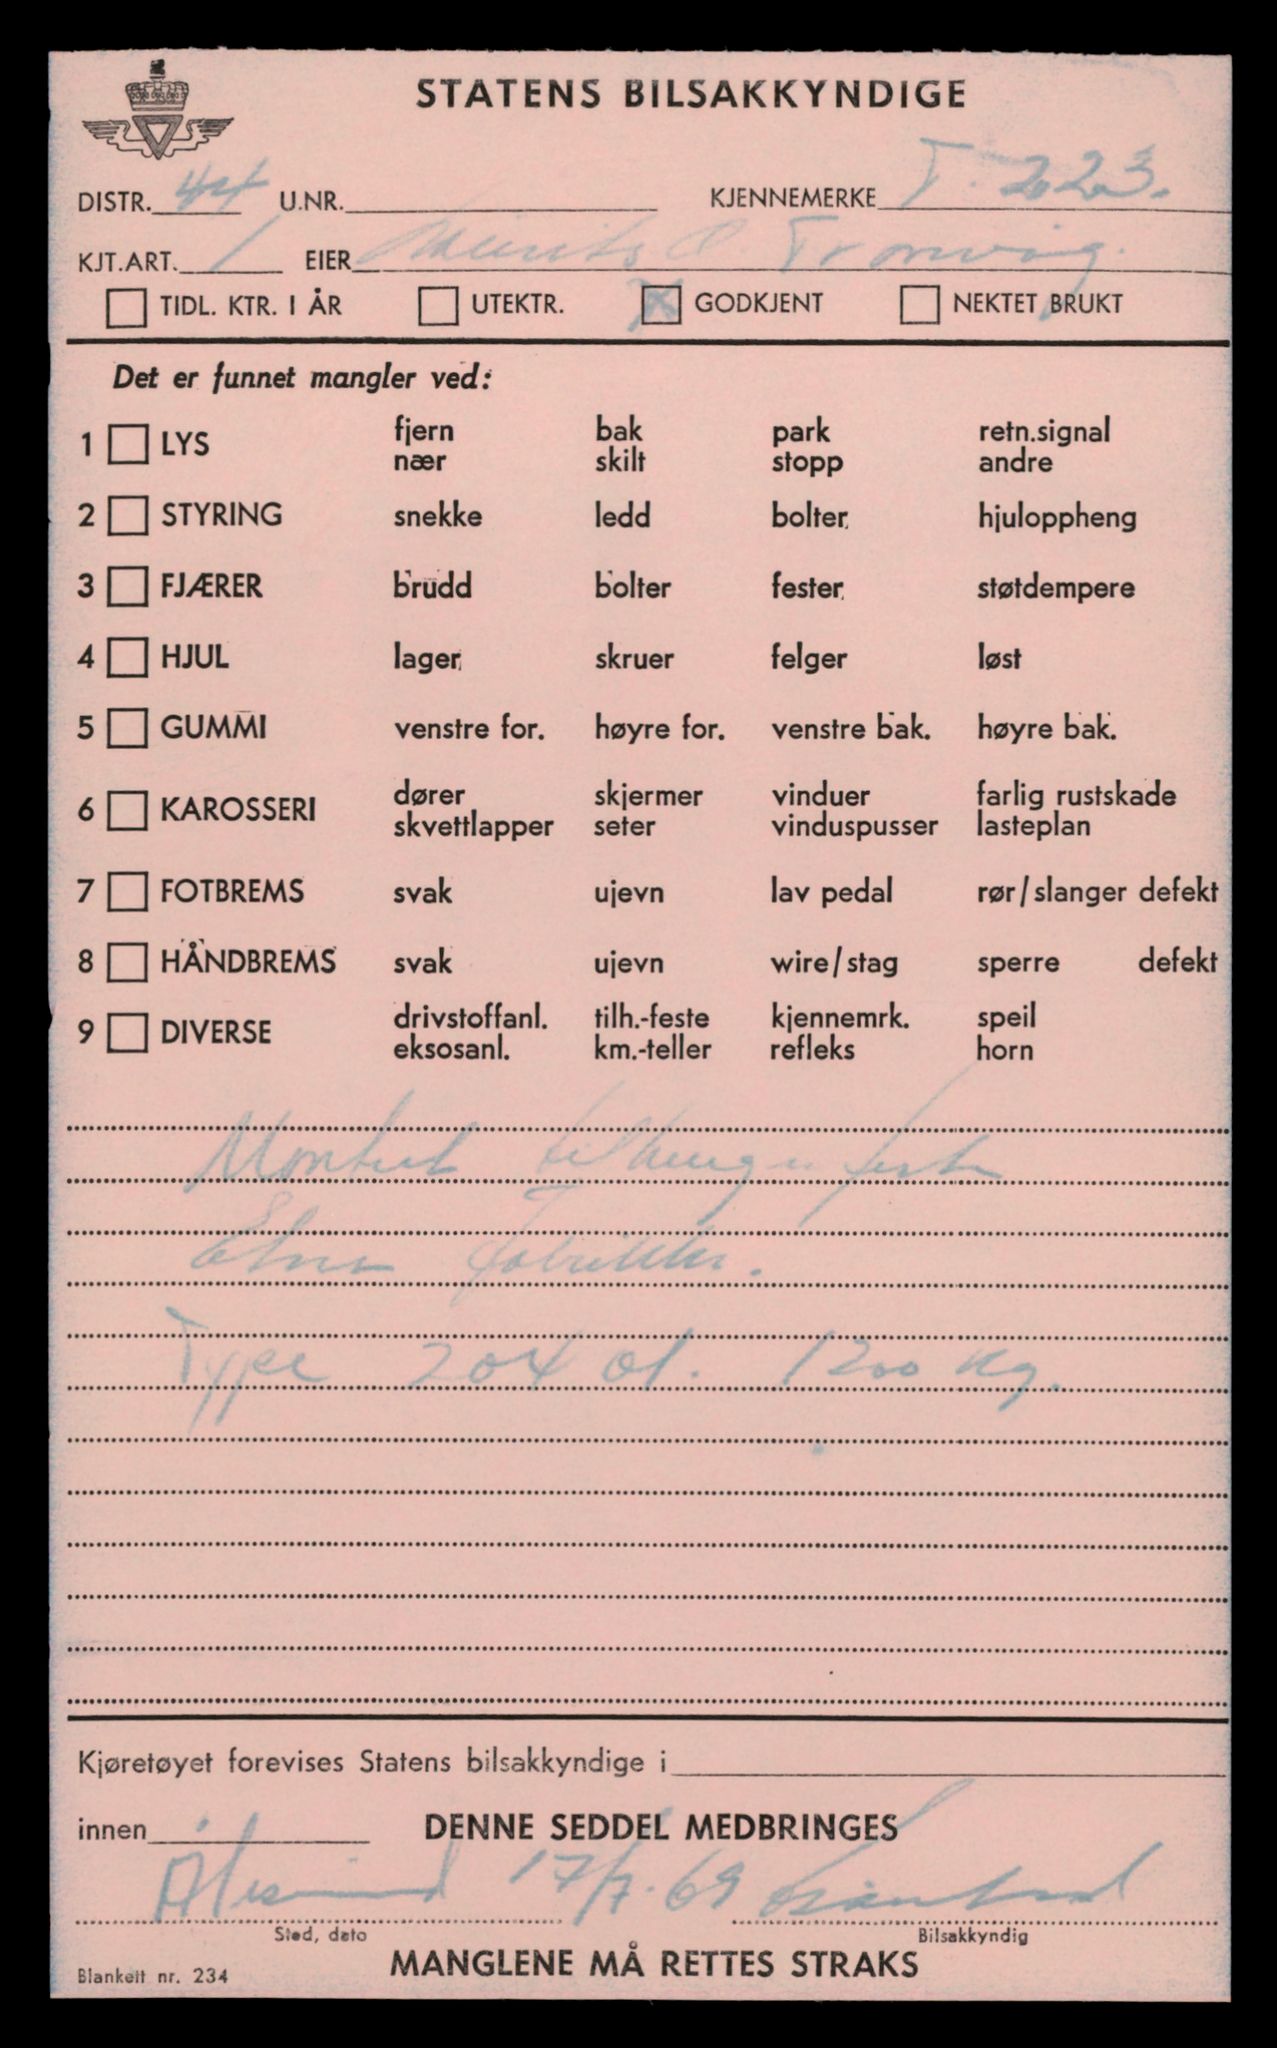 STATENS BILSAKKYNDIGE
DISTR. 44 U.NR. KJENNEMERKE T. 223.
KJT.ART. 1 EIER Mürits O Tronvig.
TIDL. KTR. I ÅR UTEKTR. X GODKJENT NEKTET BRUKT
Det er funnet mangler ved:
1 LYS fjern bak park retn.signal
nær skilt stopp andre
2 STYRING snekke ledd bolter hjuloppheng
3 FJÆRER brudd bolter fester støtdempere
4 HJUL lager skruer felger løst
5 GUMMI venstre for. høyre for. venstre bak. høyre bak.
6 KAROSSERI dører skjermer vinduer farlig rustskade
skvettlapper seter vinduspusser lasteplan
7 FOTBREMS svak ujevn lav pedal rør/slanger defekt
8 HÅNDBREMS svak ujevn wire/stag sperre defekt
9 DIVERSE drivstoffanl. tilh.-feste kjennemrk. speil
eksosanl. km.-teller refleks horn
Montert tilhenger feste
Fabrikker.
Type 204 ol. 1200 kg.
Kjøretøyet forevises Statens bilsakkyndige i
innen DENNE SEDDEL MEDBRINGES
Ålesund 17/7.69
Sted, dato Bilsakkyndig
MANGLENE MÅ RETTES STRAKS
Blankett nr. 234